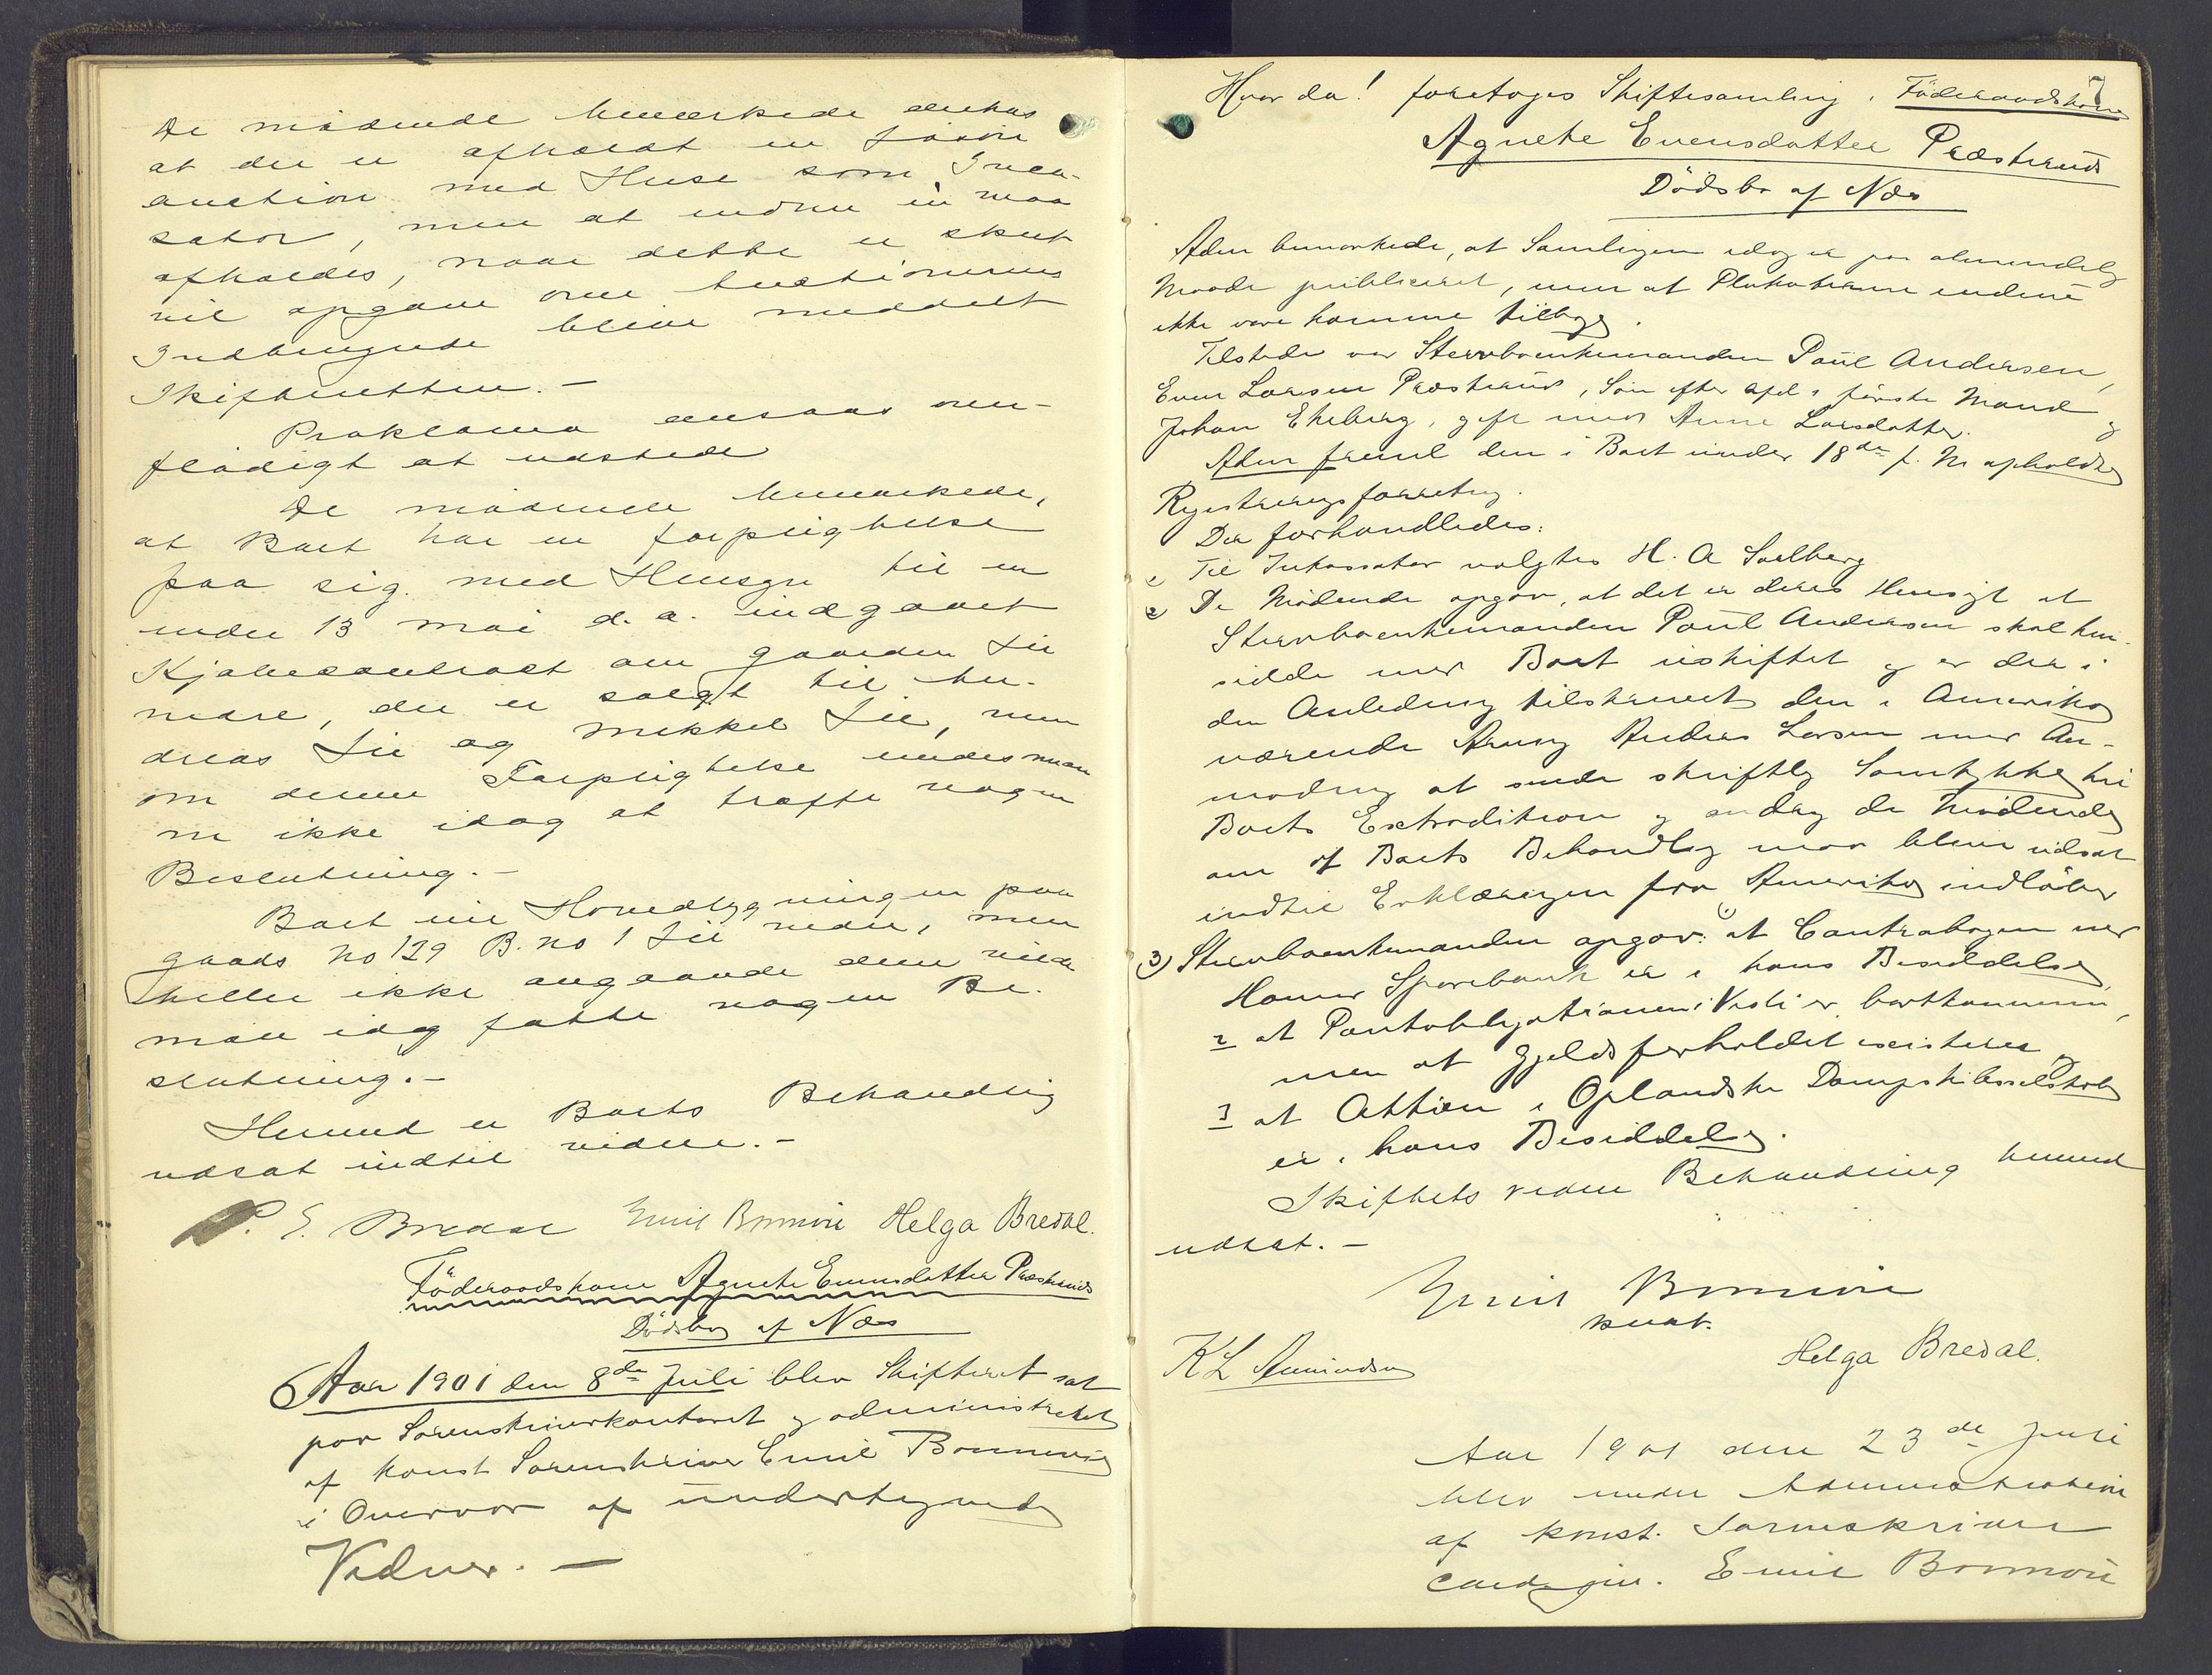 De mødende bemærkede derhos
at der er afholdt en Løsøre
auction med Huse som Inca-
sator, men at endnu en maa
afholdes, naar dette er skeet
vil opgave over Auctionernes
Indbringende blive meddelt
Skifteretten. -
Proklama ansaaes over-
flødigt at udstede
De mødende bemærkede,
at Boet har en forpligtelse
paa sig med Hensyn til en
under 13 mai d. a. indgaaet
Kjøbecontract om gaarden Lie
nedre, der er solgt til An-
dreas Lie og Mikkel Lie, men
om denne Forpligtelse
ikke idag at træffe nogen
Beslutning. -
Boet eier Hovedbygningen paa
gaards No 129 B. no 1 Lie nedre, men
heller ikke angaaende denne vilde
man idag fatte nogen Be-
slutning. -
Hermed er Boets Behandling
udsat indtil videre. -
P. E. Bredal Emil Bonnevie Helga Bredal.
Föderaadskone Agnete Evensdatter Præsterud
Dödsbo af Næs
Aar 1901 den 8de Juli blev Skifteret sat
paa Sorenskriverkontoret og administreret
af konst Sorenskriver Emil Bonnevie
i Overvær af undertegnede
Vidner. -
7
Hvor da! foretoges Skiftesamling i Föderaadskone
Agnethe Evensdatter Præsteruds
Dödsbo af Næs
Adm bemærkede, at Samlingen idag er paa almindelig
Maade publiceret, men at Plakaterne endnu
ikke vare komne tilbage.
Tilstede var Stervboenkemanden Paul Andersen,
Even Larsen Præsterud, Sön efter afd's förste Mand og
Johan Ekeberg, gift med Anne Larsdatter.
Adm freml den i Boet under 18de f. M afholdte
Registreringsforretng.
Der forhandledes:
1 Til Inkassator valgtes H. A Solberg
2 De Mödende opgav, at det er deres Hensigt at
Sterboenkemanden Paul Andersen skal hen-
sidde med Boet uskiftet og er der i
den Anledning tilskrevet den i Amerika
værende Arving Anders Larsen med An-
modng at sende skriftlig Samtykke til
Boets Extradition og androg de Mödende
om at Boets Behandlg maa blive udsat
indtil Erklæringen fra Amerika indlöber
3) Sterboenkemanden opgav: 1) at Contrabogen med
Hamar Sparebank er i hans Besiddelse,
2 at Pantobligationen i Vestli er bortkommen,
men at Gjeldsforholdet existerer og
3 at Aktien i Oplandske Dampskibsselskab
er i hans Besiddelse.
Skiftets videre Behandling hermed
udsat. -
Emil Bonnevie
konst.
K L Amundsen
Helga Bredal.
Aar 1901 den 23de Juli
blev under Administration
af konst. Sorenskriver
Emil Bonnevie